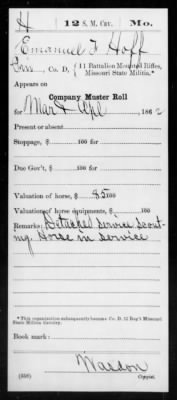 H 12 S. M. Cav. Mo.
Emanuel F Hoff
Co. D, 11 Battalion Mounted Rifles,
Missouri State Militia.*
Appears on
Company Muster Roll
for Mar & Apl, 1862
Present or absent
Stoppage, $ 100 for
Due Gov't, $ 100 for
Valuation of horse, $ 85 100
Valuation of horse equipments, $ 100
Remarks: Detached service scout-
ing Horse in service
*This organization subsequently became Co. D, 12 Reg't Missouri
State Militia Cavalry.
Book mark:
(356) Wardon
Copyist.